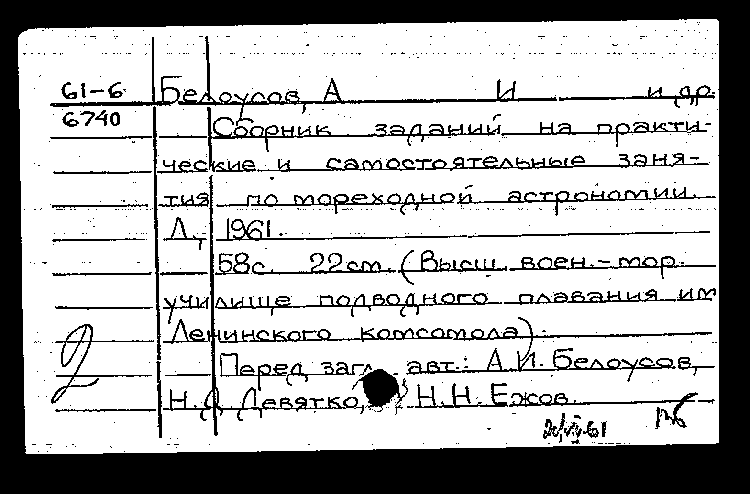 61-6 Белоусов, А И и др.
6740 Сборник заданий на практи-
ческие и самостоятельные заня-
тия по мореходной астрономии.
Л., 1961.
58с. 22см. (Высш. воен.-мор.
училище подводного плавания им
Ленинского комсомола).
Перед загл. авт.: А.И. Белоусов,
Н. Д. Девятко, Н.Н. Ежов.
2